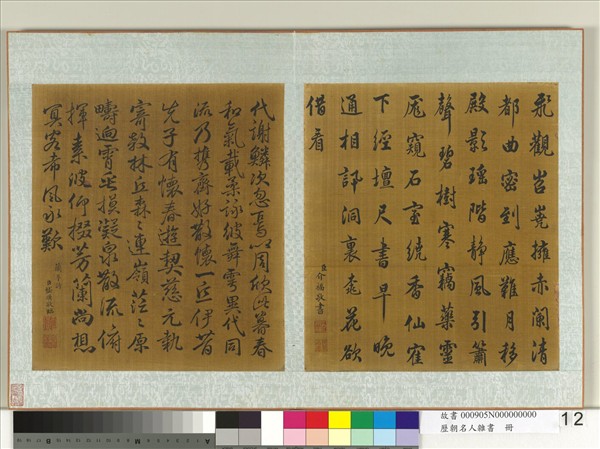 飛觀岧嶤擁赤闌清
都曲密到應難月移
殿影瑤階靜風引簫
聲碧樹寒竊藥靈
厖窺石室繞香仙寉
下經壇尺書早晚
通相訊洞裏桃花欲
借看
臣介福敬書
代謝鱗次忽焉以周欣此暮春
和氣載柔詠彼舞雩異代同
流乃携齊好散懷一丘伊昔
先子有懷春遊契茲言執
寄敖林丘森〻連嶺茫〻原
疇迥霄垂凝泉散流俯
揮素波仰掇芳蘭尚想
客希風永歎
蘭亭詩
故書 000905N000000000
歷朝名人雜書 冊
12